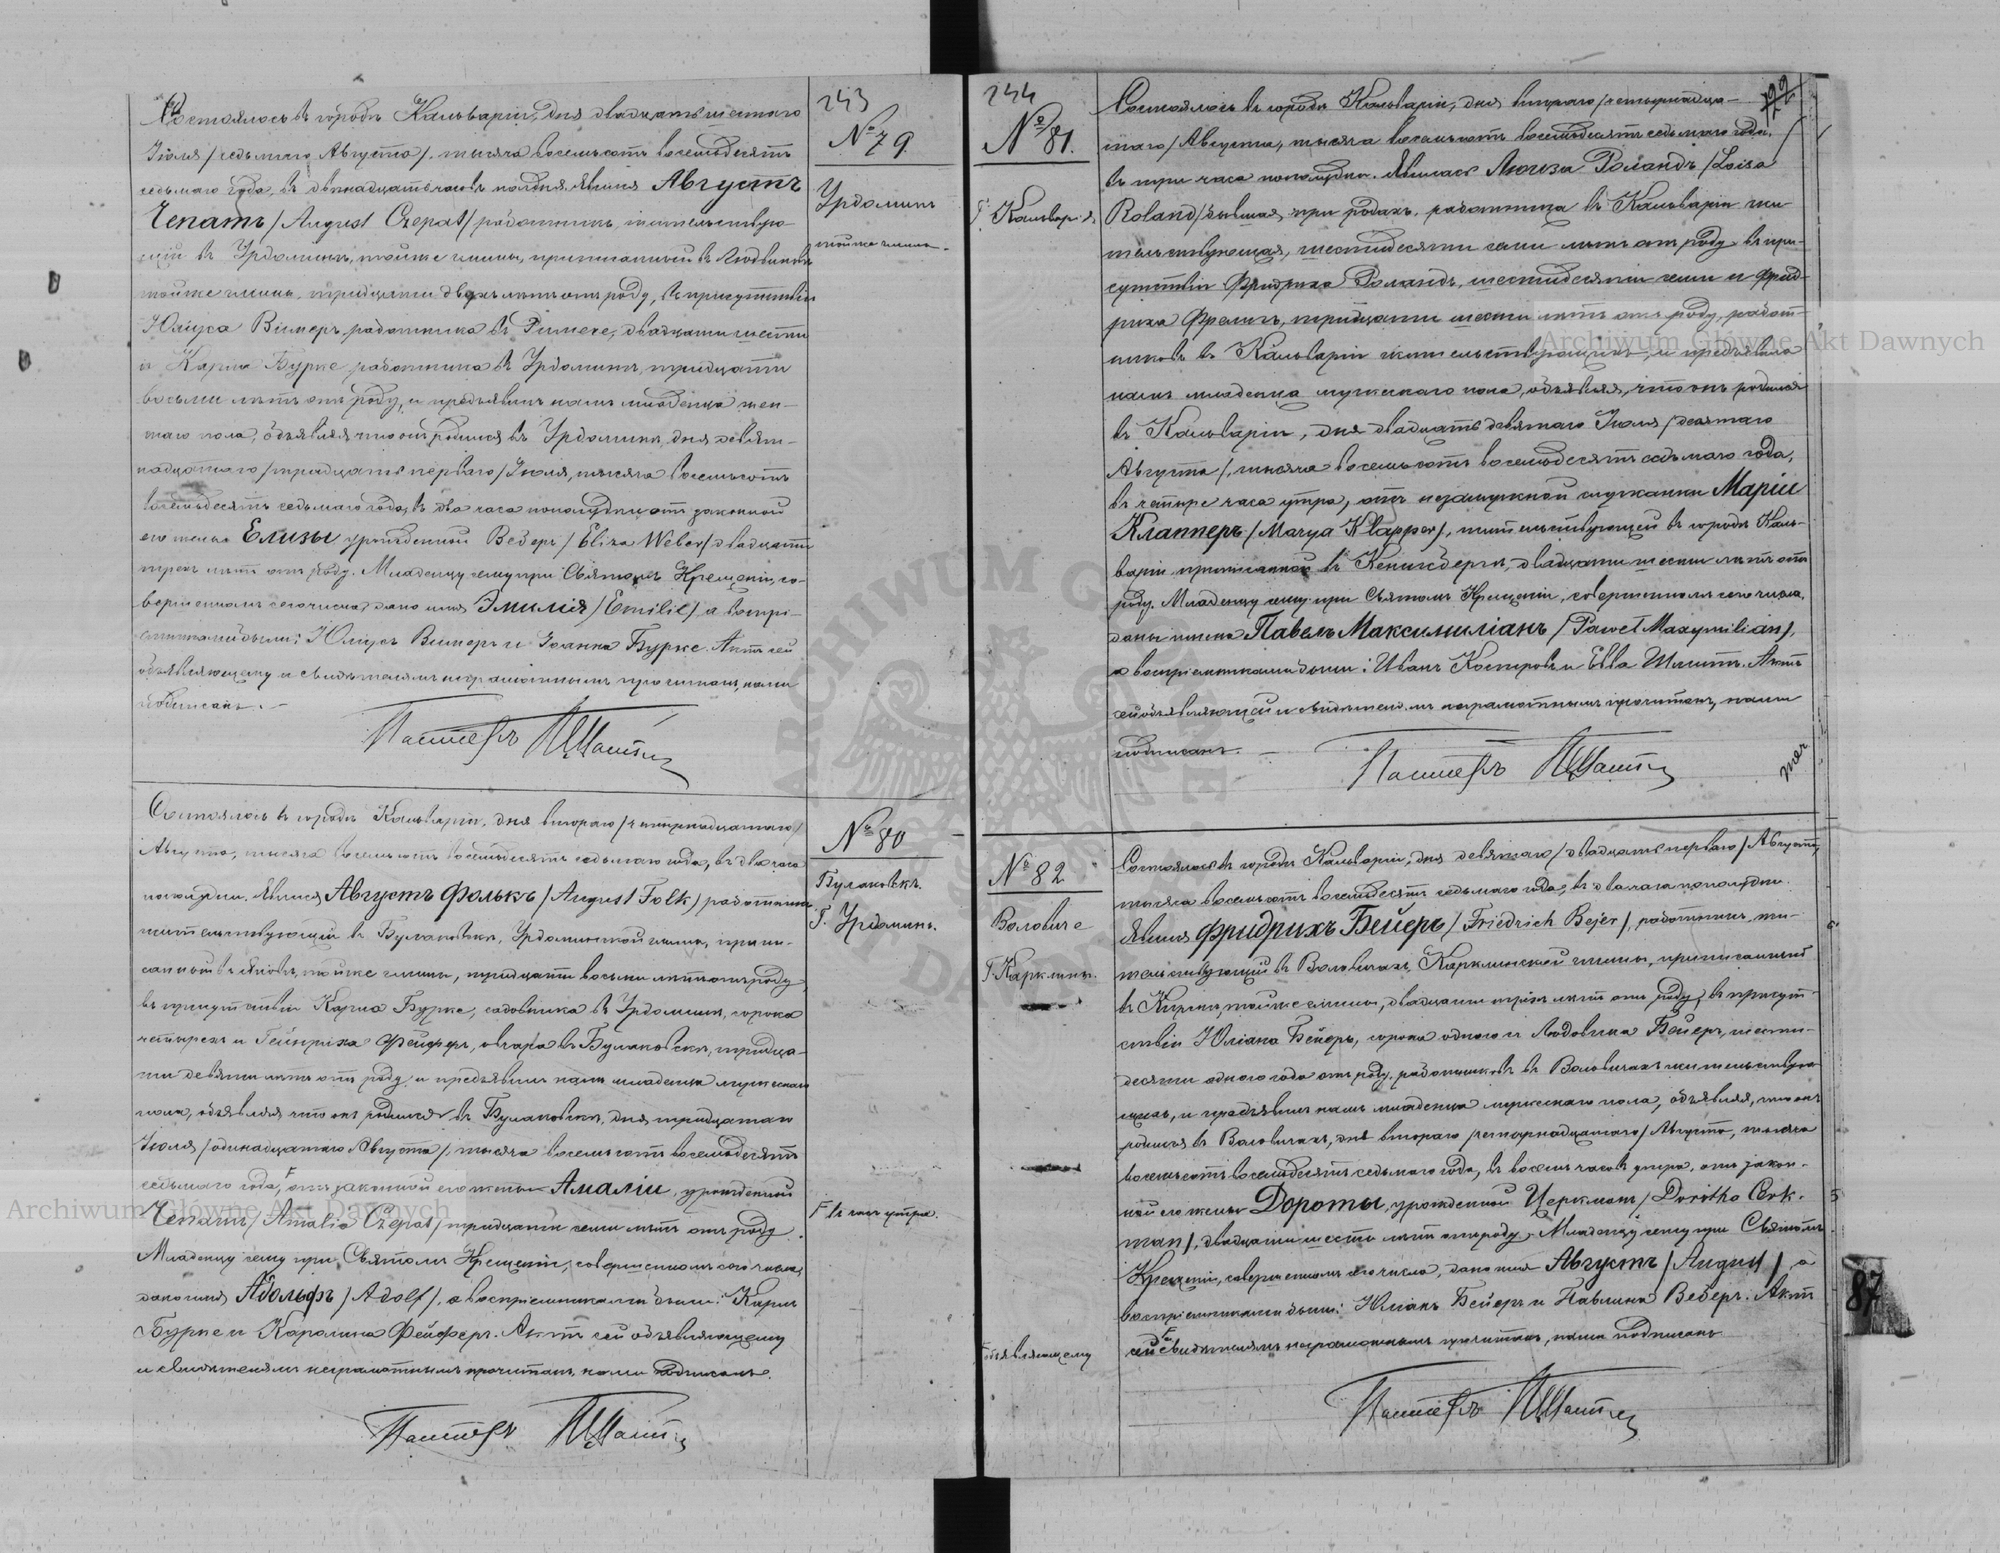 243
№ 79.
Урдомин
тойже гмины.
Состоялось въ городѣ Кальваріи, дня двадцать шестаго
Іюля /седьмаго Августа/, тысяча восемьсотъ восемьдесятъ
седьмаго года, въ двѣнадцать часовъ полдня. Явился Августъ
Чепатъ /August Czepat/ работникъ, жительствую-
щій въ Урдоминѣ, тойже гмины, приписанный въ Людвиновѣ
тойже гмины, тридцати двухъ лѣтъ отъ роду, въ присутствіи
Юліуса Вимеръ, работника въ двадцати шести
и Карла Бурке работника въ Урдоминѣ, тридцати
восьми лѣтъ отъ роду, и предъявилъ намъ младенца жен-
скаго пола, объявляя что онъ родился въ Урдоминѣ, дня девят-
надцатаго /тридцать перваго/ Іюля, тысяча восемьсотъ
восемьдесятъ седьмаго года, въ два часа пополудни отъ законной
его жены Елизы урожденной Веберъ /Eliza Weber/ двадцати
трехъ лѣтъ отъ роду. Младенцу сему при Святомъ Крещеніи, со-
вершенномъ сего числа, дано имя Эмилія /Emilie/ а воспрі-
емниками были: Юліусъ Вимеръ и Іоанна Бурке. Актъ сей
объявляющему и свидѣтелямъ неграмотнымъ прочитанъ, нами
подписанъ. —
Пасторъ
№ 80
Булаковскъ.
Г. Урдоминъ.
Состоялось въ городѣ Кальваріи, дня втораго /четырнадцатаго/
Августа, тысяча восемьсотъ восемьдесятъ седьмаго года, въ два часа
пополудни. Явился Августъ Фолькъ /August Folk/ работникъ
жительствующій въ Булаковскѣ, Урдоминской гмины, припи-
санный въ тойже гмины, тридцати восьми лѣтъ отъ роду,
въ присутствіи Карла Бурке, садовника въ Урдоминѣ, сорока
четырехъ и Гейнриха Фейферъ, овчара въ Булаковскѣ, тридца-
ти девяти лѣтъ отъ роду, и предъявилъ намъ младенца мужескаго
пола, объявляя что онъ родился въ Булаковскѣ, дня тридцатаго
Іюля /одинадцатаго Августа/, тысяча восемьсотъ восемьдесятъ
седьмаго года, отъ законной его жены Амаліи, урожденной
Чепатъ /Amalie Czepat/, тридцати семи лѣтъ отъ роду.
Г въ часъ утра.
Младенцу сему при Святомъ Крещеніи, совершенномъ сего числа,
дано имя Адольфъ /Adolf/, а воспріемниками были: Карлъ
Бурке и Каролина Фейферъ. Актъ сей объявляющему
и свидѣтелямъ неграмотнымъ прочитанъ, нами подписанъ.
Пасторъ
244
№ 81.
Г. Кальварія.
Состоялось въ городѣ Кальваріи, дня втораго /четырнадца-
таго/ Августа, тысяча восемьсотъ восемьдесятъ седьмаго года,
въ три часа пополудни. Явилась Люиза Роландъ /Loisa
Roland/ бывшая при родахъ, работница въ Кальваріи жи-
тельствующая, шестидесяти семи лѣтъ отъ роду, въ при-
сутствіи Фридриха Роландъ, шестидесяти семи и Фрид-
риха Фрелихъ, тридцати шести лѣтъ отъ роду, работ-
никовъ въ Кальваріи жительствующихъ, и предъявила
намъ младенца мужескаго пола, объявляя, что онъ родился
въ Кальваріи, дня двадцать девятаго Іюля /десятаго
Августа/, тысяча восемьсотъ восемьдесятъ седьмаго года,
въ четыре часа утра, отъ незамужной служанки Маріи
Клапперъ /Marya Klapper/, жительствующей въ городѣ Каль-
варіи приписанной въ Кенигсбергѣ, двадцати шести лѣтъ отъ
роду. Младенцу сему при Святомъ Крещеніи, совершенномъ сего числа,
даны имена Павелъ Максимиліанъ /Paweł Maxymilian/,
а воспріемниками были: Иванъ Костровъ и Евва Шмитъ. Актъ
сей объявляющей и свидѣтелямъ неграмотнымъ прочитанъ, нами
подписанъ. —
Пасторъ
№ 82
Воловиче
Г. Карклины.
Состоялось въ городѣ Кальваріи, дня девятаго /двадцать перваго/ Августа,
тысяча восемьсотъ восемьдесятъ седьмаго года, въ два часа пополудни.
Явился Фридрихъ Бейеръ /Friedrich Bejer/, работникъ, жи-
тельствующій въ Воловичахъ, Карклинской гмины, приписанный
въ тойже гмины, двадцати трехъ лѣтъ отъ роду, въ присут-
ствіи Юліана Бейеръ, сорока одного и Людовика Бейеръ, шести-
десяти одного года отъ роду, работниковъ въ Воловичахъ жительствую-
щихъ, и предъявилъ намъ младенца мужескаго пола, объявляя, что онъ
родился въ Воловичахъ, дня втораго /четырнадцатаго/ Августа, тысяча
восемьсотъ восемьдесятъ седьмаго года, въ восемь часовъ утра, отъ закон-
ной его жены Дороты, урожденной Церкманъ /Dorotha Cerk-
man/, двадцати шести лѣтъ отъ роду. Младенцу сему при Святомъ
Крещеніи, совершенномъ сего числа, дано имя Августъ /August/, а
воспріемниками были: Юліанъ Бейеръ и Павлина Веберъ. Актъ
сей Г и свидѣтелямъ неграмотнымъ прочитанъ, нами подписанъ
Г объявляющему
Пасторъ
87
Archiwum Główne Akt Dawnych
Archiwum Główne Akt Dawnych